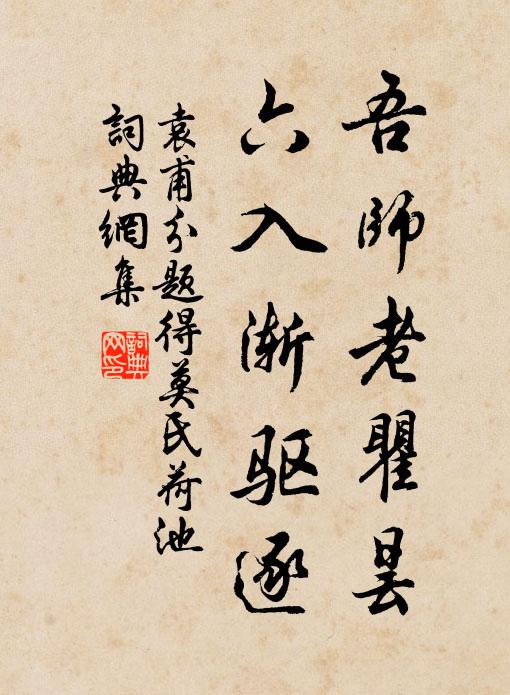 吾師老瞿昙
六入渐驱逐
袁甫分題得莫氏荷池
詞典網集
詞典网印